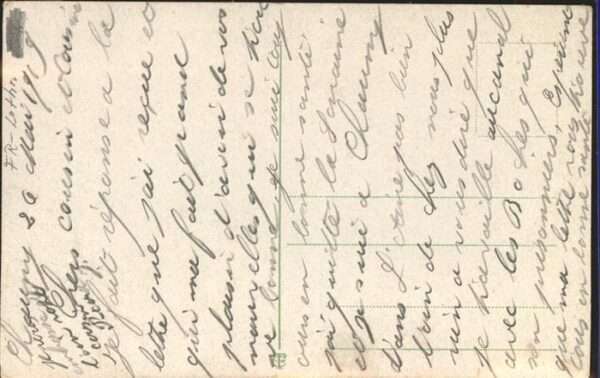 FR. Lothr.
Chauny 26 Mai 1919
Chers cousin cousine
je fait réponse a la
lettre que j'ai reçue et
qui ma fait grand
plaisir d'avoir de vos
nouvelles qui se trou
ve bonne je suis touj
ours en bonne santé
j'ai quitté la
et je suis a Chauny
dans L'aisne pas bien
loin de chez nous plus
rien a vous dire que
je travaille au canal
avec les Boches qui
son prisonniers,
que ma lettre vous trouve
tous en bonne santé